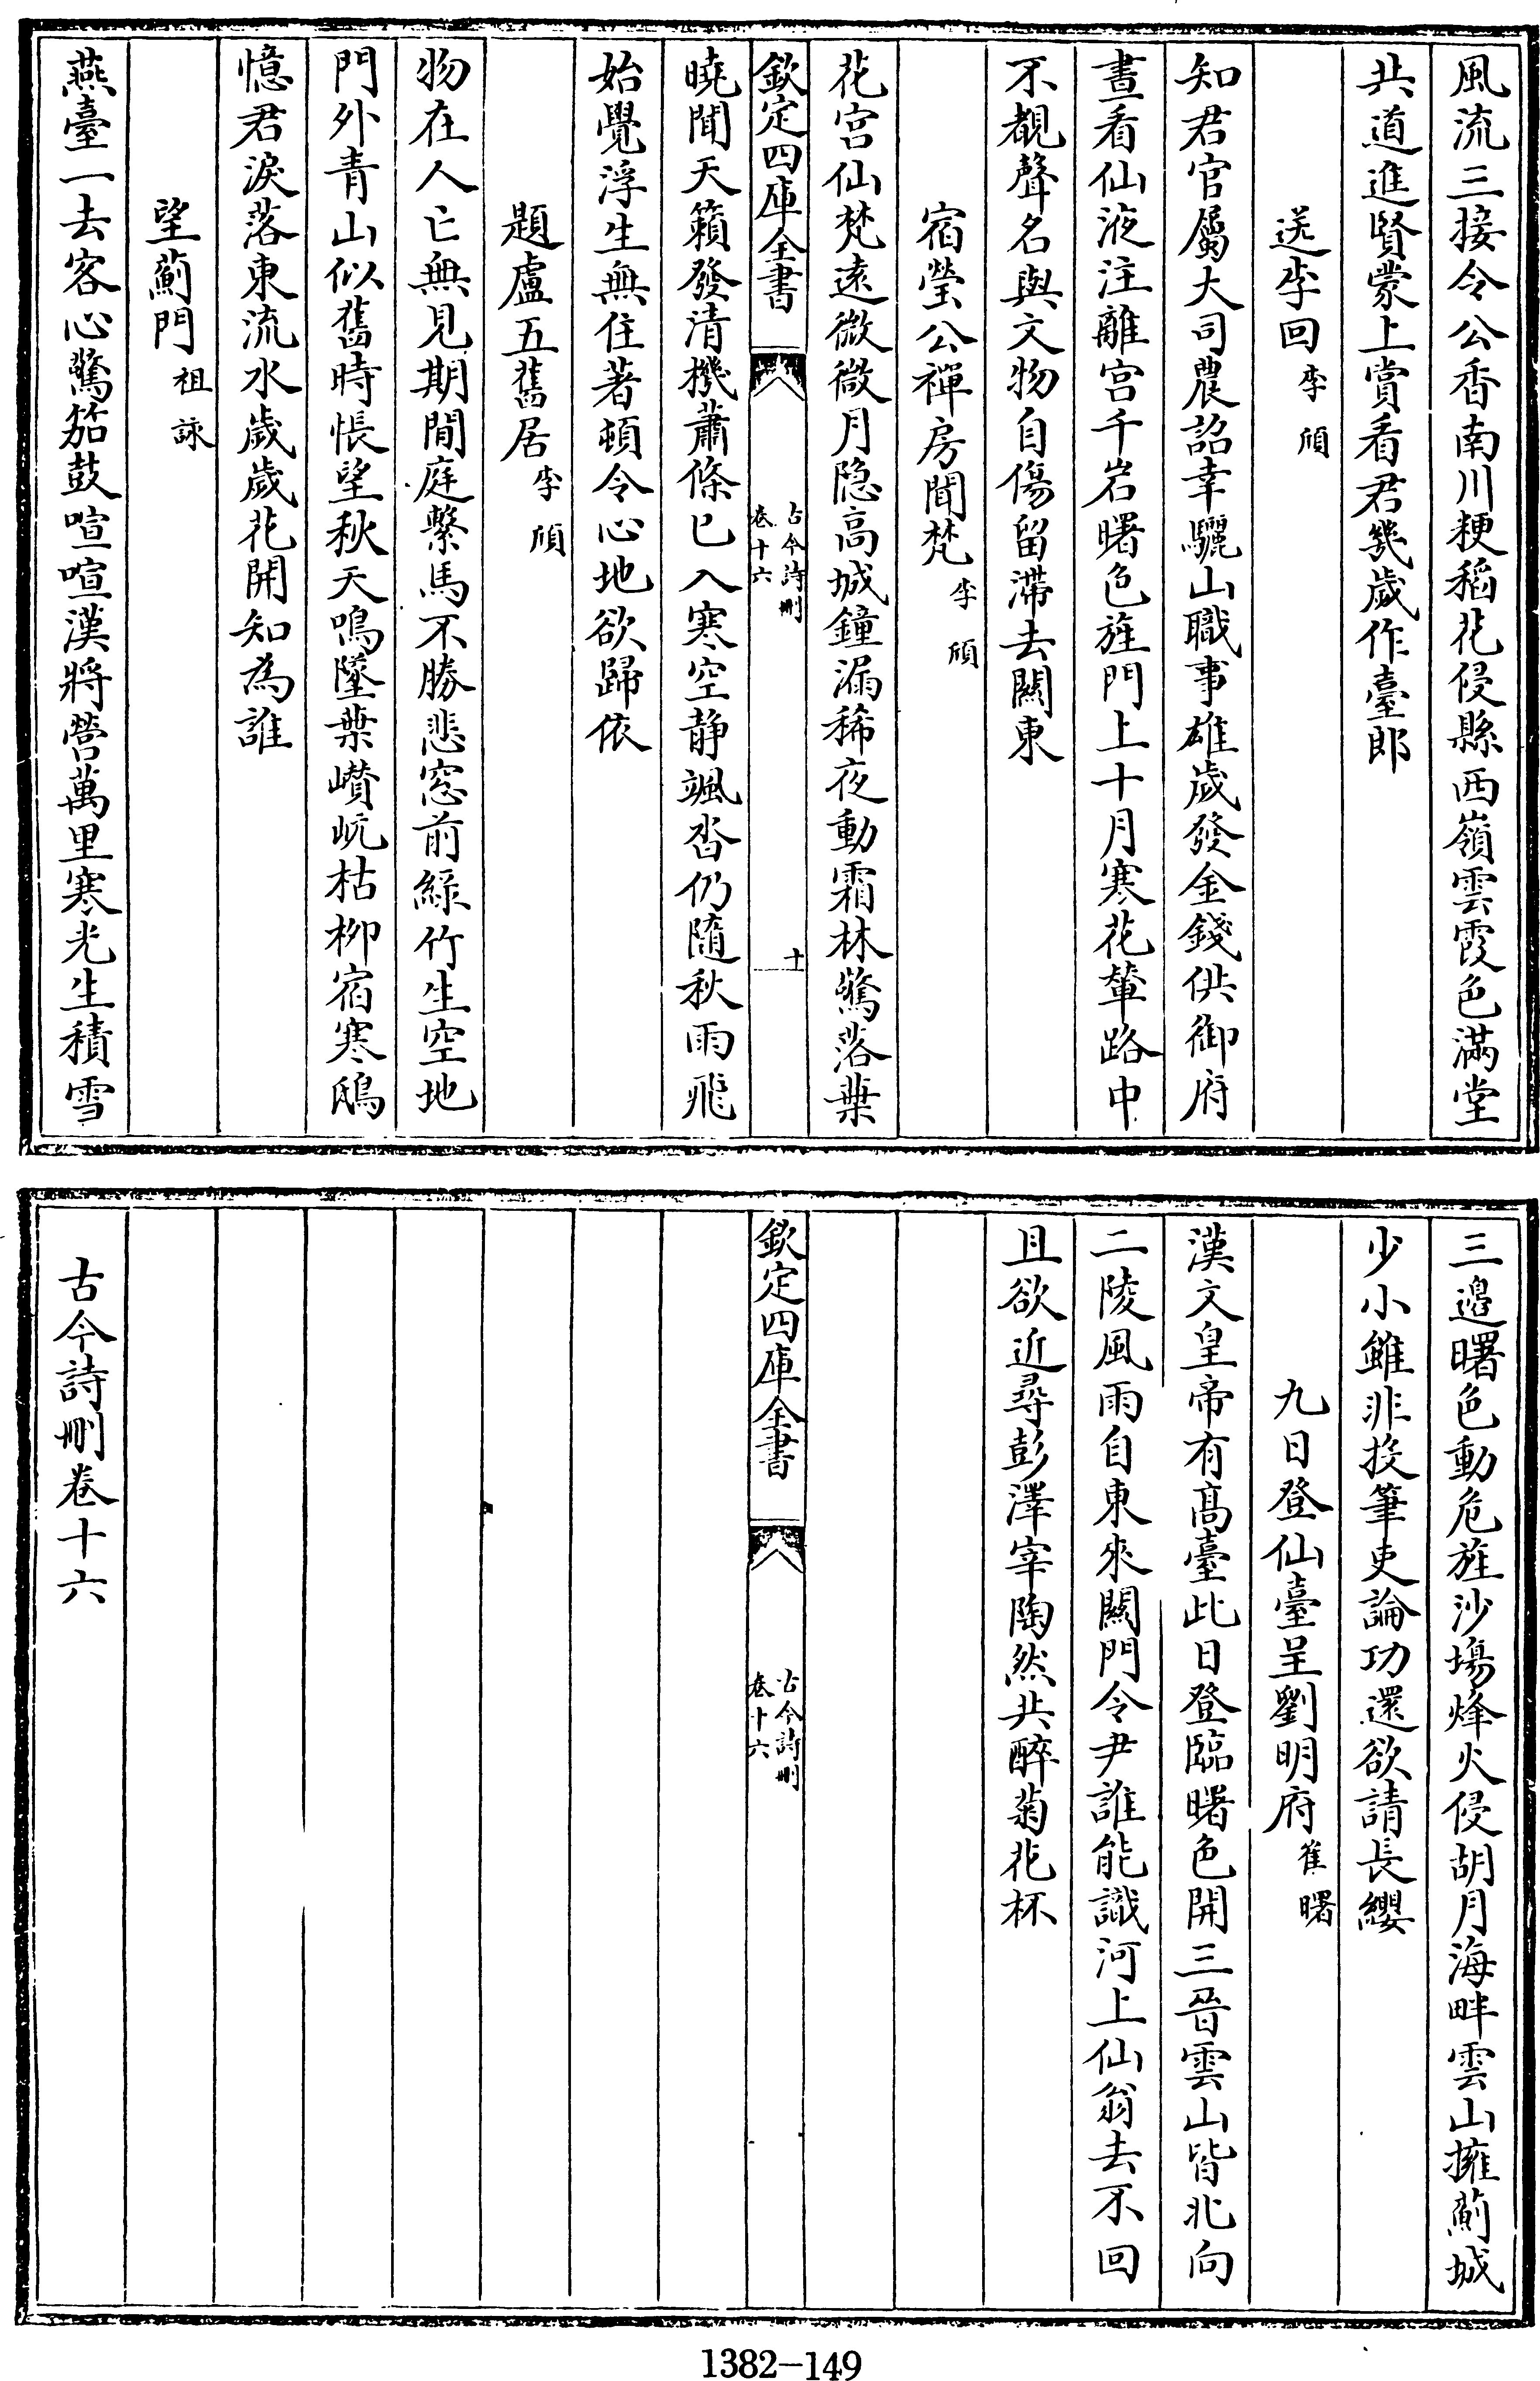 風流三接令公香南川粳稻花侵縣西嶺雲霞色滿堂
共道進賢蒙上賞看君幾歲作臺郎
送李回李頎
知君官屬大司農詔幸驪山職事雄歲發金錢供御府
晝看仙液注離宫千岩曙色旌門上十月寒花輦路中
不覩聲名與文物自傷留滯去闗東
宿瑩公禪房聞梵李頎
花宫仙梵逺微微月隐髙城鐘漏稀夜動霜林驚落葉
欽定四庫全書
古今詩刪
卷十六
十
曉聞天籟發清機蕭條已入寒空静颯沓仍隨秋雨飛
始覺浮生無住著頓令心地欲歸依
題盧五舊居李頎
物在人亡無見期閒庭繫馬不勝悲窓前綠竹生空地
門外青山似舊時悵望秋天鳴墜葉巑岏枯栁宿寒鴟
憶君淚落東流水歲歲花開知為誰
望薊門祖詠
燕臺一去客心驚笳鼓喧喧漢將營萬里寒光生積雪
三邉曙色動危旌沙場烽火侵胡月海畔雲山擁薊城
少小雖非投筆吏論功還欲請長纓
九日登仙臺呈劉明府崔曙
漢文皇帝有髙臺此日登臨曙色開三晉雲山皆北向
二陵風雨自東來闗門令尹誰能識河上仙翁去不回
且欲近尋彭澤宰陶然共醉菊花杯
欽定四庫全書
古今詩刪
卷十六
古今詩刪卷十六
1382-149